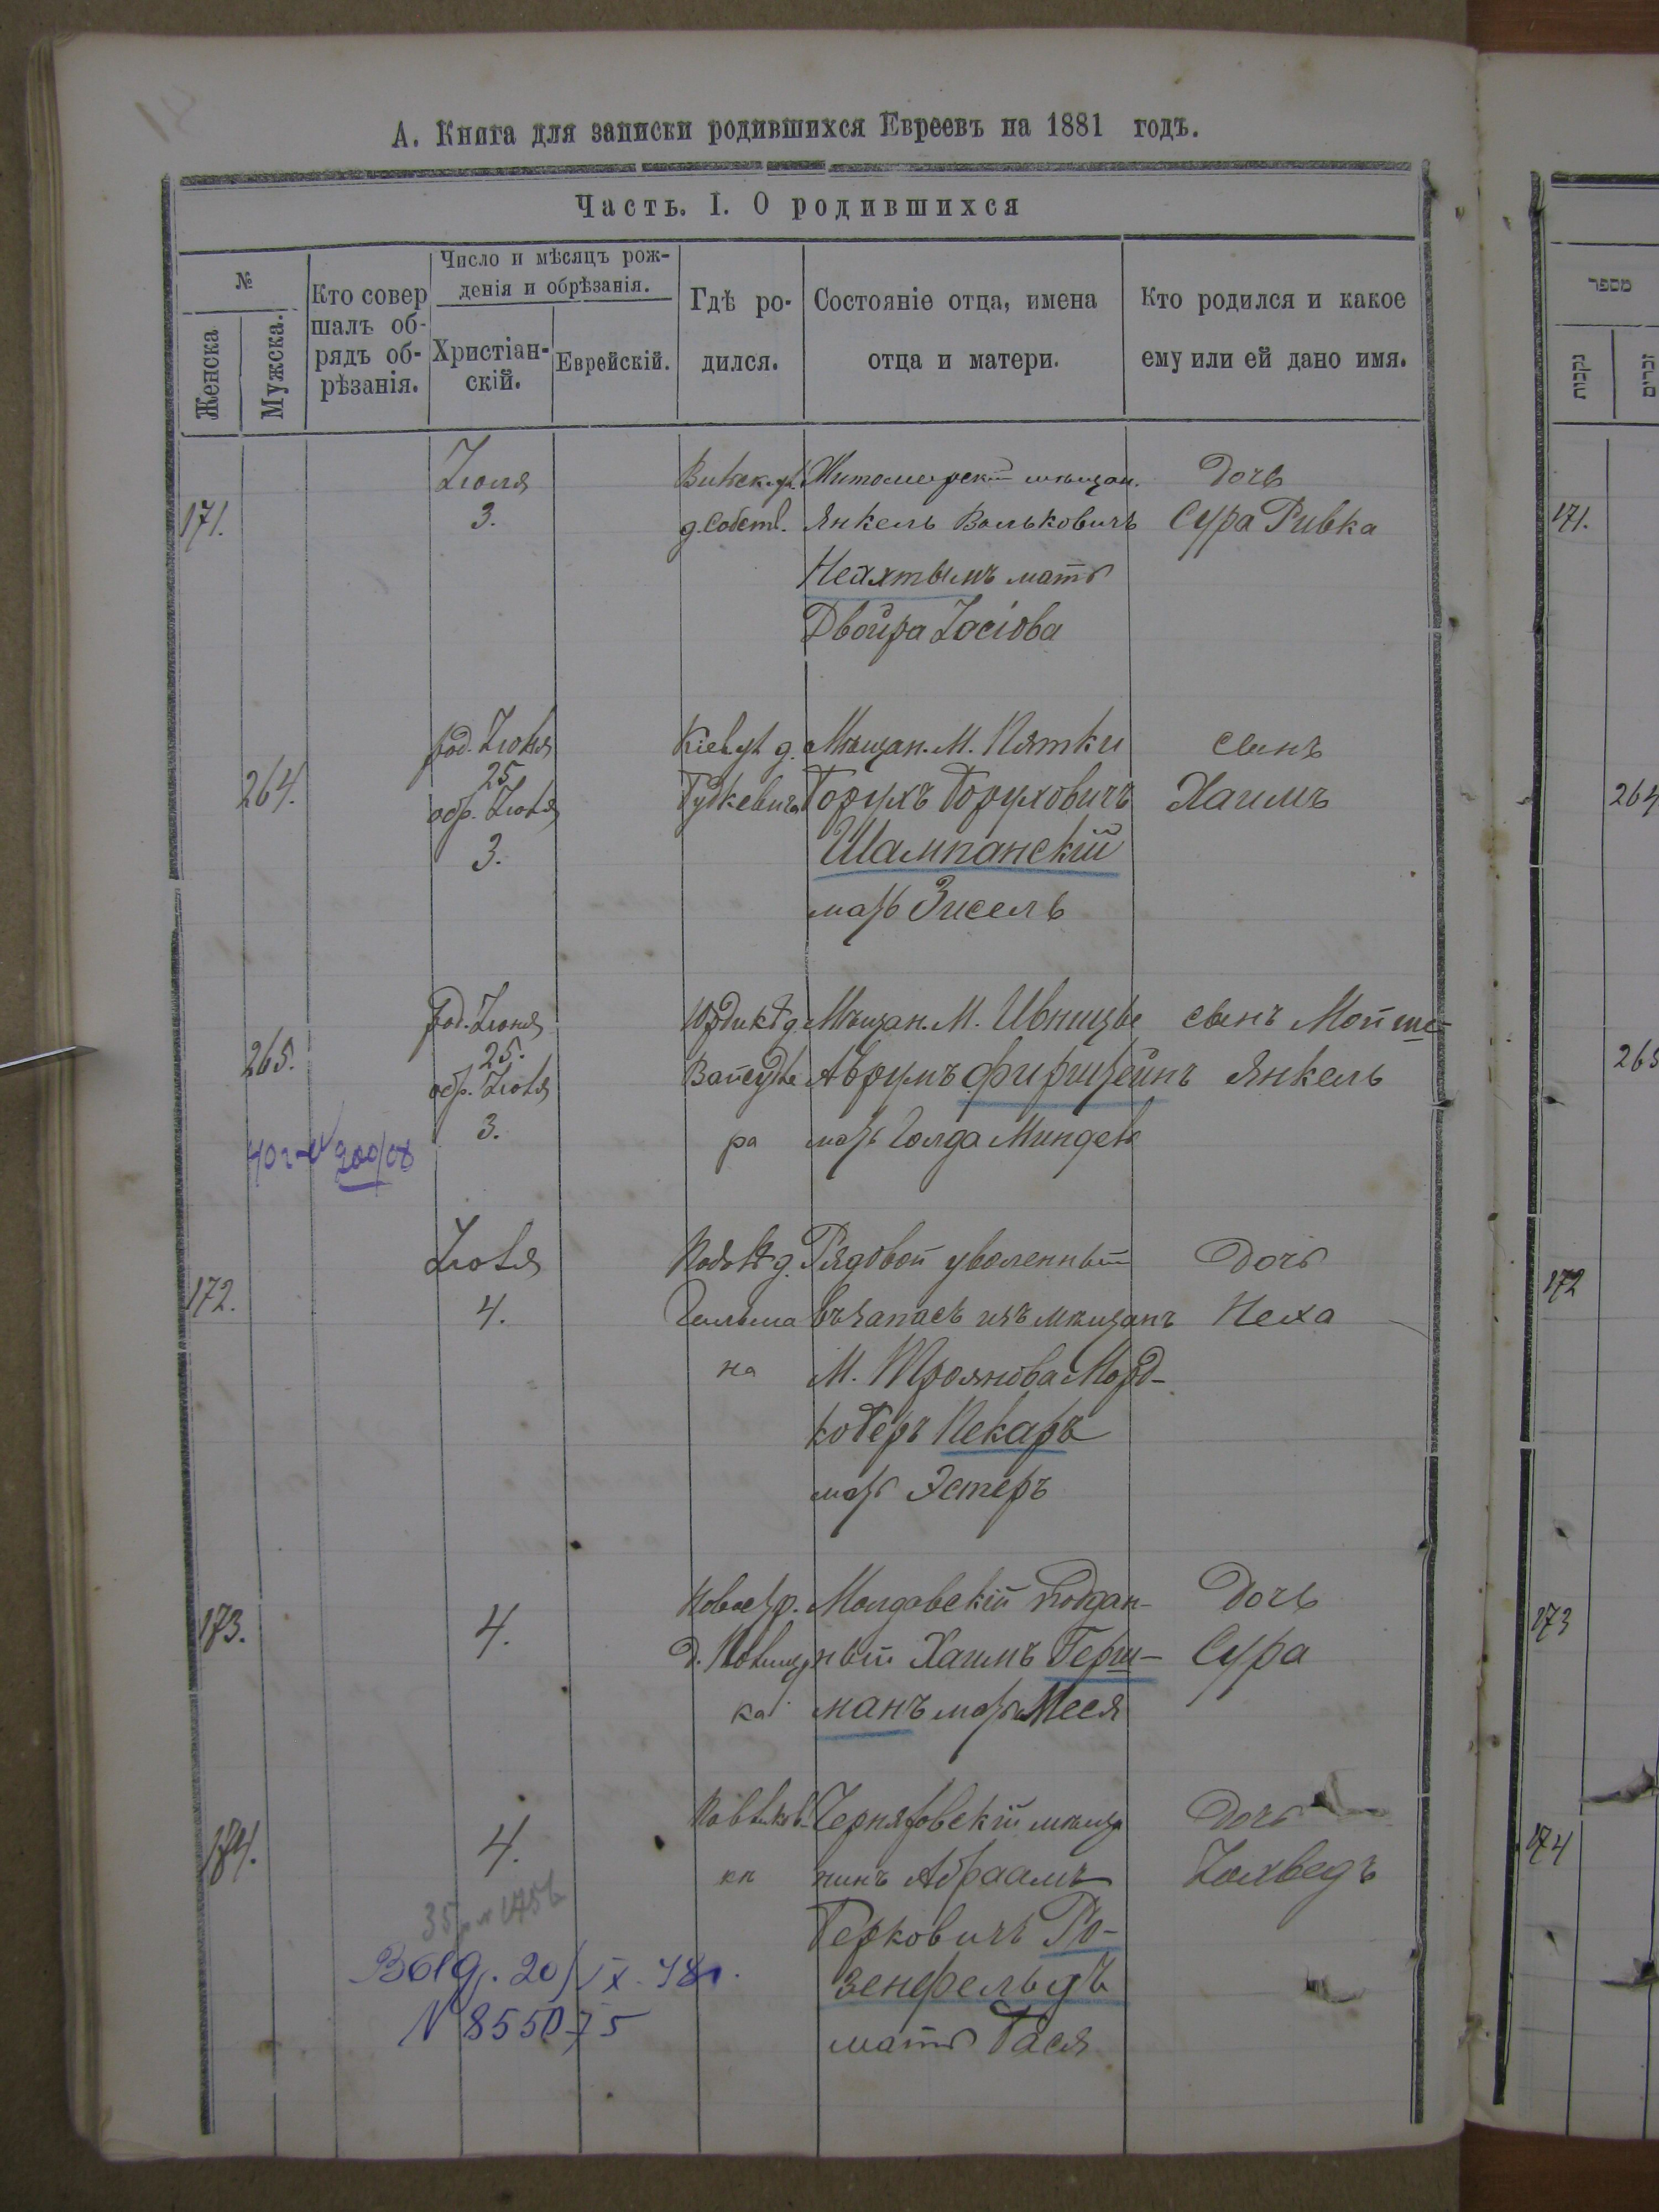 А. Книга для записки родившихся Евреевъ на 1881 годъ.
Часть. I. О родившихся
№
Женска
Мужска.
Кто совер
шалъ об-
рядъ об-
рѣзанія.
Число и мѣсяцъ рож-
денія и обрѣзанія.
Христіан-
скій.
Еврейскій.
Гдѣ ро-
дился.
Состояніе отца, имена
отца и матери.
Кто родился и какое
ему или ей дано имя.
171.
Іюля
3.
д. Собств.
Житомирскій мѣщан.
Янкель Вольковичъ
Неххтымъ мать
Двойра Іосіова
Дочь
Сура Ривка
264.
род. Іюня
25
обр. Іюля
3.
Кіевск д.
Будкевича
Мѣщан. М. Пятки
Борухъ Боруховичъ
Шампанскій
мать Зисель
сынъ
Хаимъ
265.
род. Іюня
25.
обр. Іюля
3.
ра
Мѣщан. М. Ивницы
Аврумъ Фирштейнъ
мать Голда Миндель
сынъ Мойше-
Янкель
172.
Іюля
4.
Гельма
на
Рядовой уволенный
въ запасъ изъ мѣщанъ
М. Троянова Морд-
ко Беръ Пекарь
мать Эстеръ
Дочь
Неха
173.
4.
ка
Молдавскій поддан-
ный Хаимъ Герш-
манъ мать Меся
Дочь
Сура
174.
4.
Черняховскій мѣща
нинъ Абраамъ
Берковичъ Ро-
зенфельдъ
мать Бася
Дочь
Іохведъ
N 855075
מספר
נקבות
זכרים
171.
264
265
172
173
174